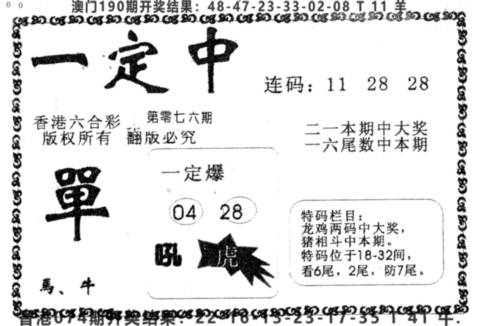 澳门190期开奖结果：48-47-23-33-02-08 T 11 羊
一定中
连码：11 28 28
香港六合彩 第零七六期
版权所有 翻版必究
二一本期中大奖
一六尾数中本期
單
一定爆
04 28
吼 虎
馬、牛
特码栏目：
龙鸡两码中大奖，
猪相斗中本期。
特码位于18-32间，
看6尾，2尾，防7尾。
香港074期开奖结果：22-16-13-23-17-35 T 41 牛.